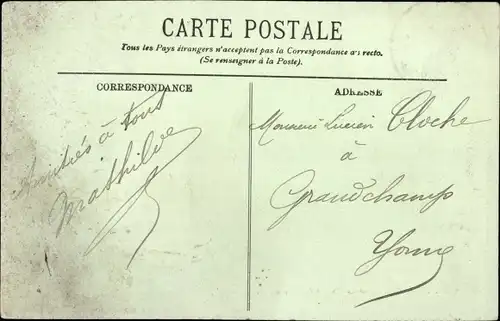 CARTE POSTALE
Tous les Pays étrangers n'acceptent pas la Correspondance au recto.
(Se renseigner à la Poste).
CORRESPONDANCE
Amitiés à tous
Mathilde
ADRESSE
Monsieur Lucien Cloche
à
Grandchamp
Yonne